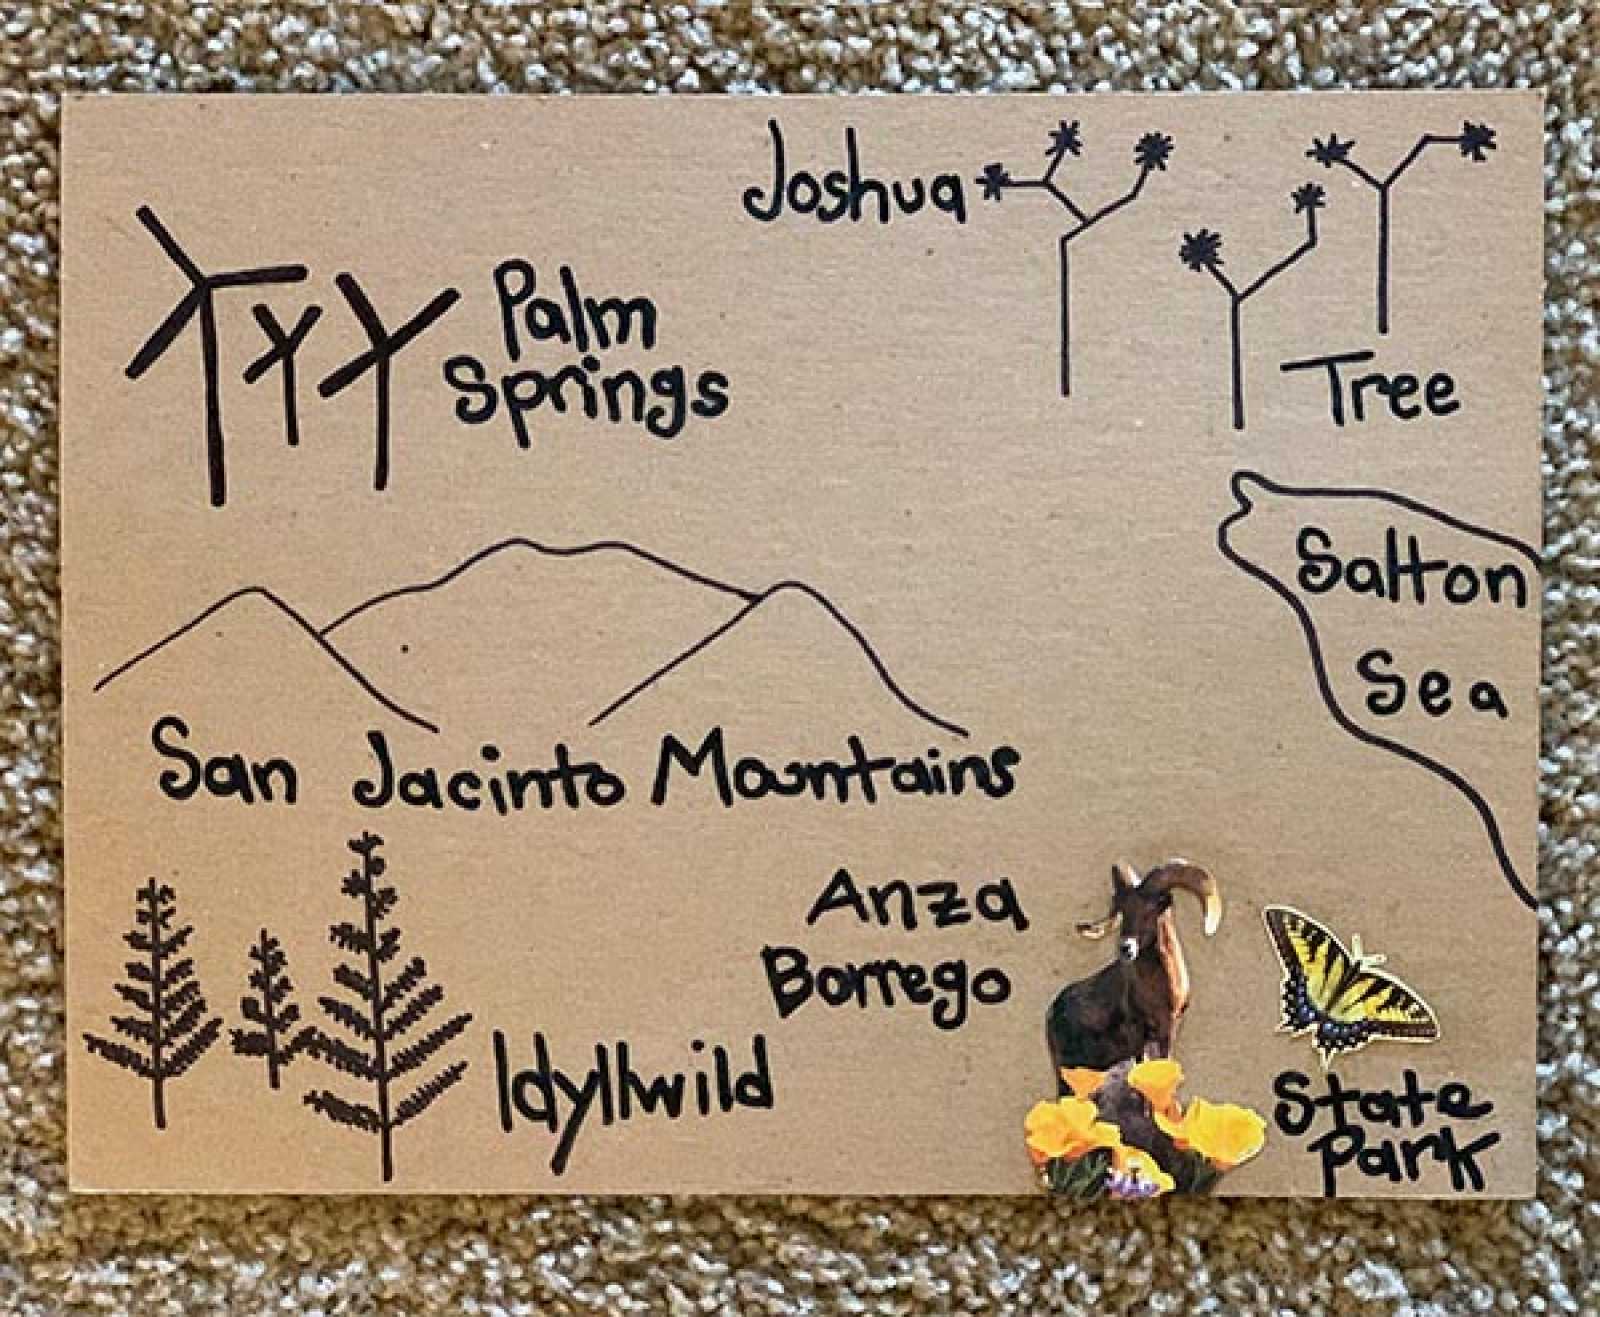 Joshua
Tree
Palm
Springs
Salton
Sea
San Jacinto Mountains
Anza
Borrego
State
Park
Idyllwild